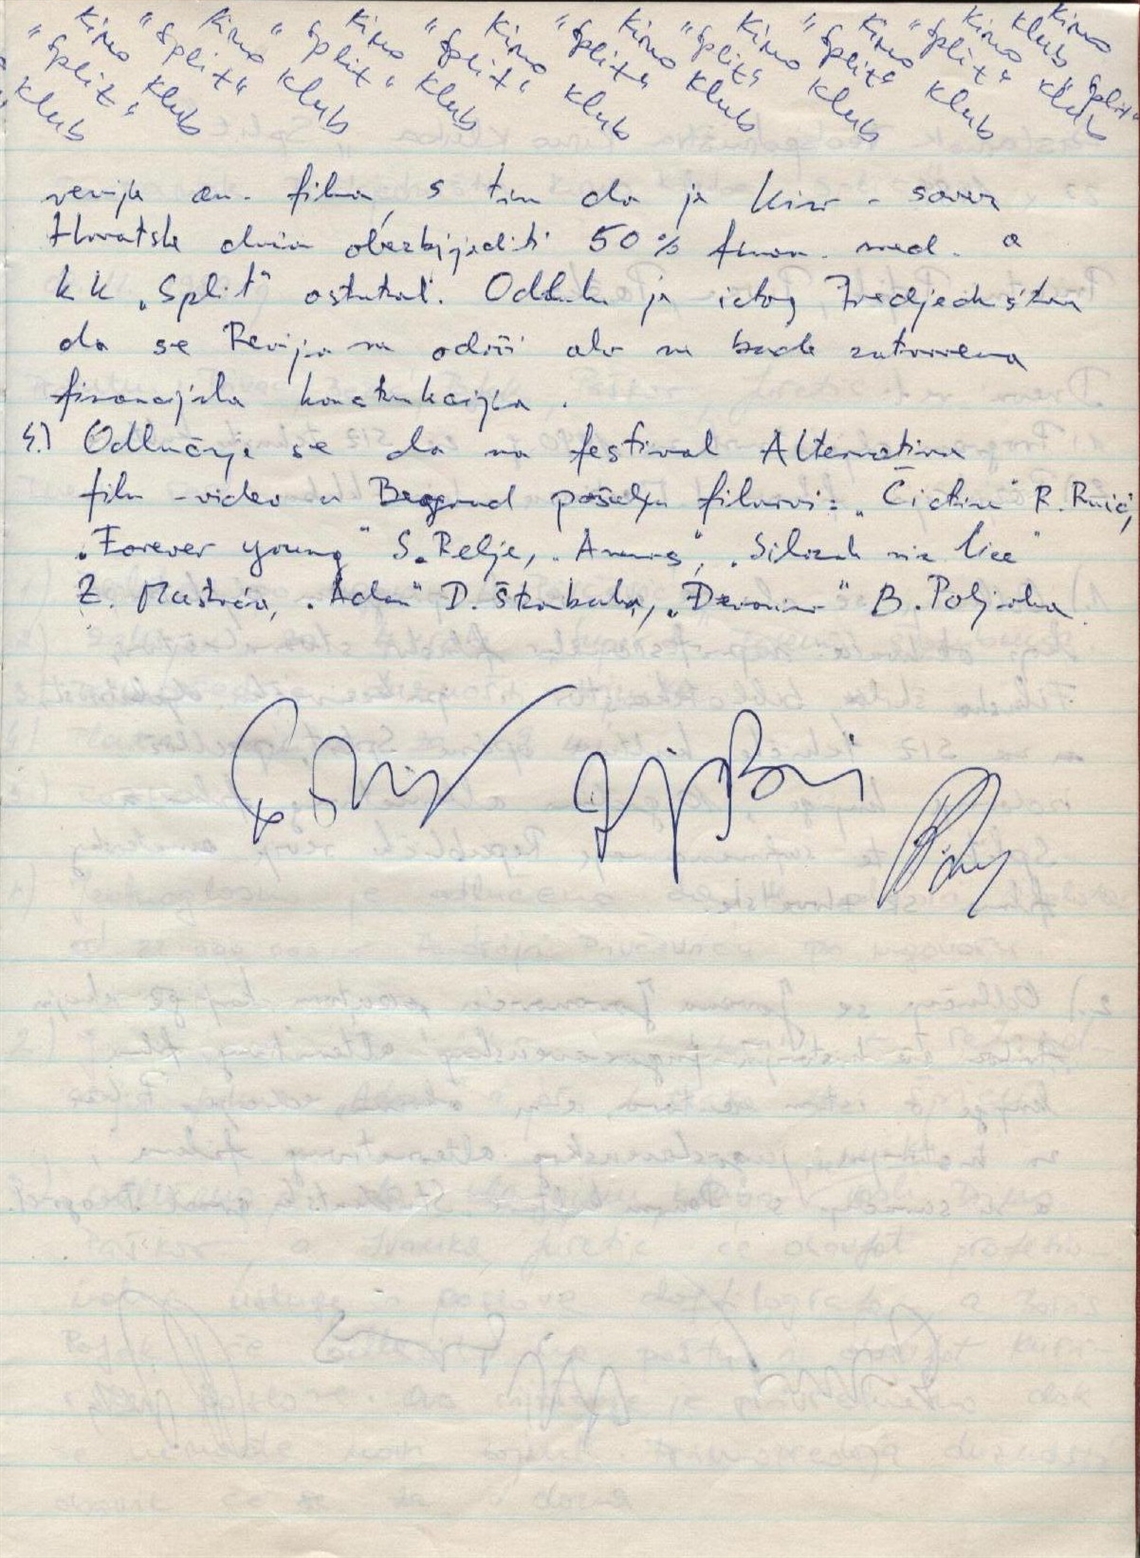 Kino klub "Split" Kino klub "Split" Kino klub "Split" Kino klub "Split" Kino klub "Split" Kino klub "Split" Kino klub "Split" Kino klub "Split" Kino klub "Split"
revija am. filma, s tim da je Kino-savez
Hrvatske dužan obezbijediti 50% finan. sred. a
KK „Split" ostatak. Odluka je istog Predsjedništva
da se Revija ne održi ako ne bude zatvorena
financijska konstrukcija.
4.) Odlučuje se da na festival Alternative
film-video u Beograd pošalju filmovi: „Čistina" R. Ruić,
„Forever young" S. Relje, „ „Silazak niz lice"
Z. Mustaća, „Adam" D. Štrubala, B. Poljaka.